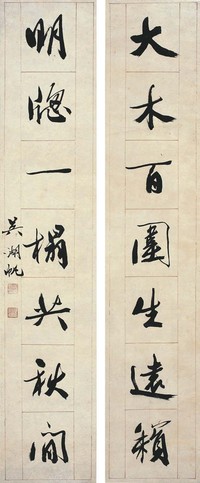 大木百圍生遠籟
明窗一榻共秋閒
吳湖帆